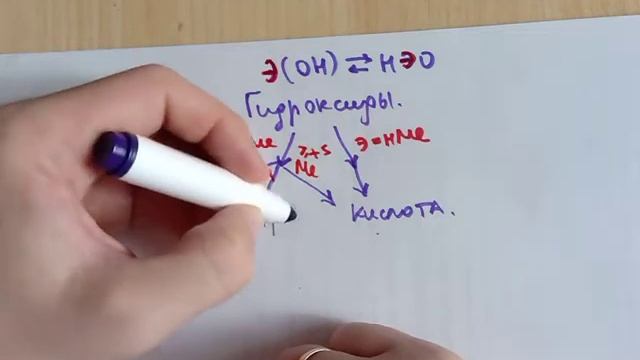 Э(OH) ⇄ HЭO
Гидроксиды.
Me ≥,+5 Э=HMe
Me
кислота.